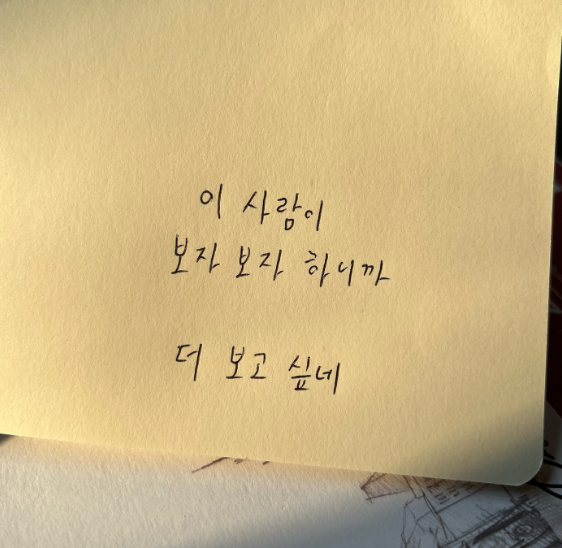 이 사람이
보자 보자 하니까
더 보고 싶네